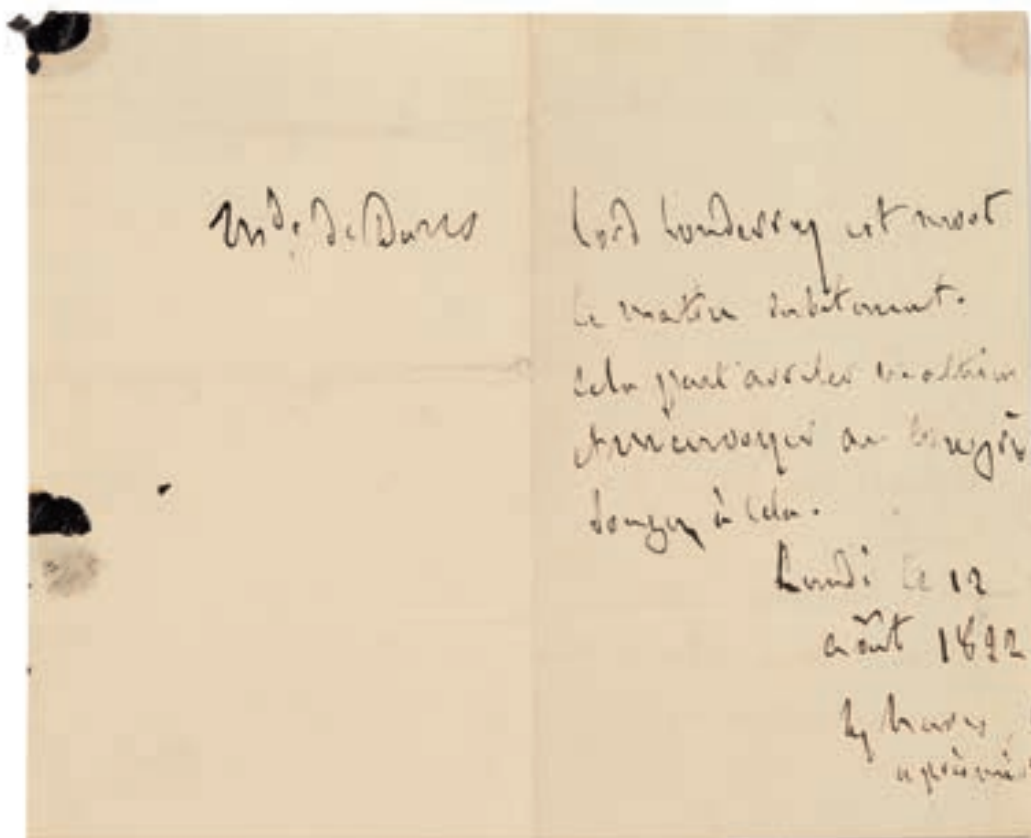 Mde de Duras
Lord Londerry est mort
ce matin subitement.
Cela peut
au congrès
Songez à cela.
Lundi ce 12
août 1822
heures
après mi